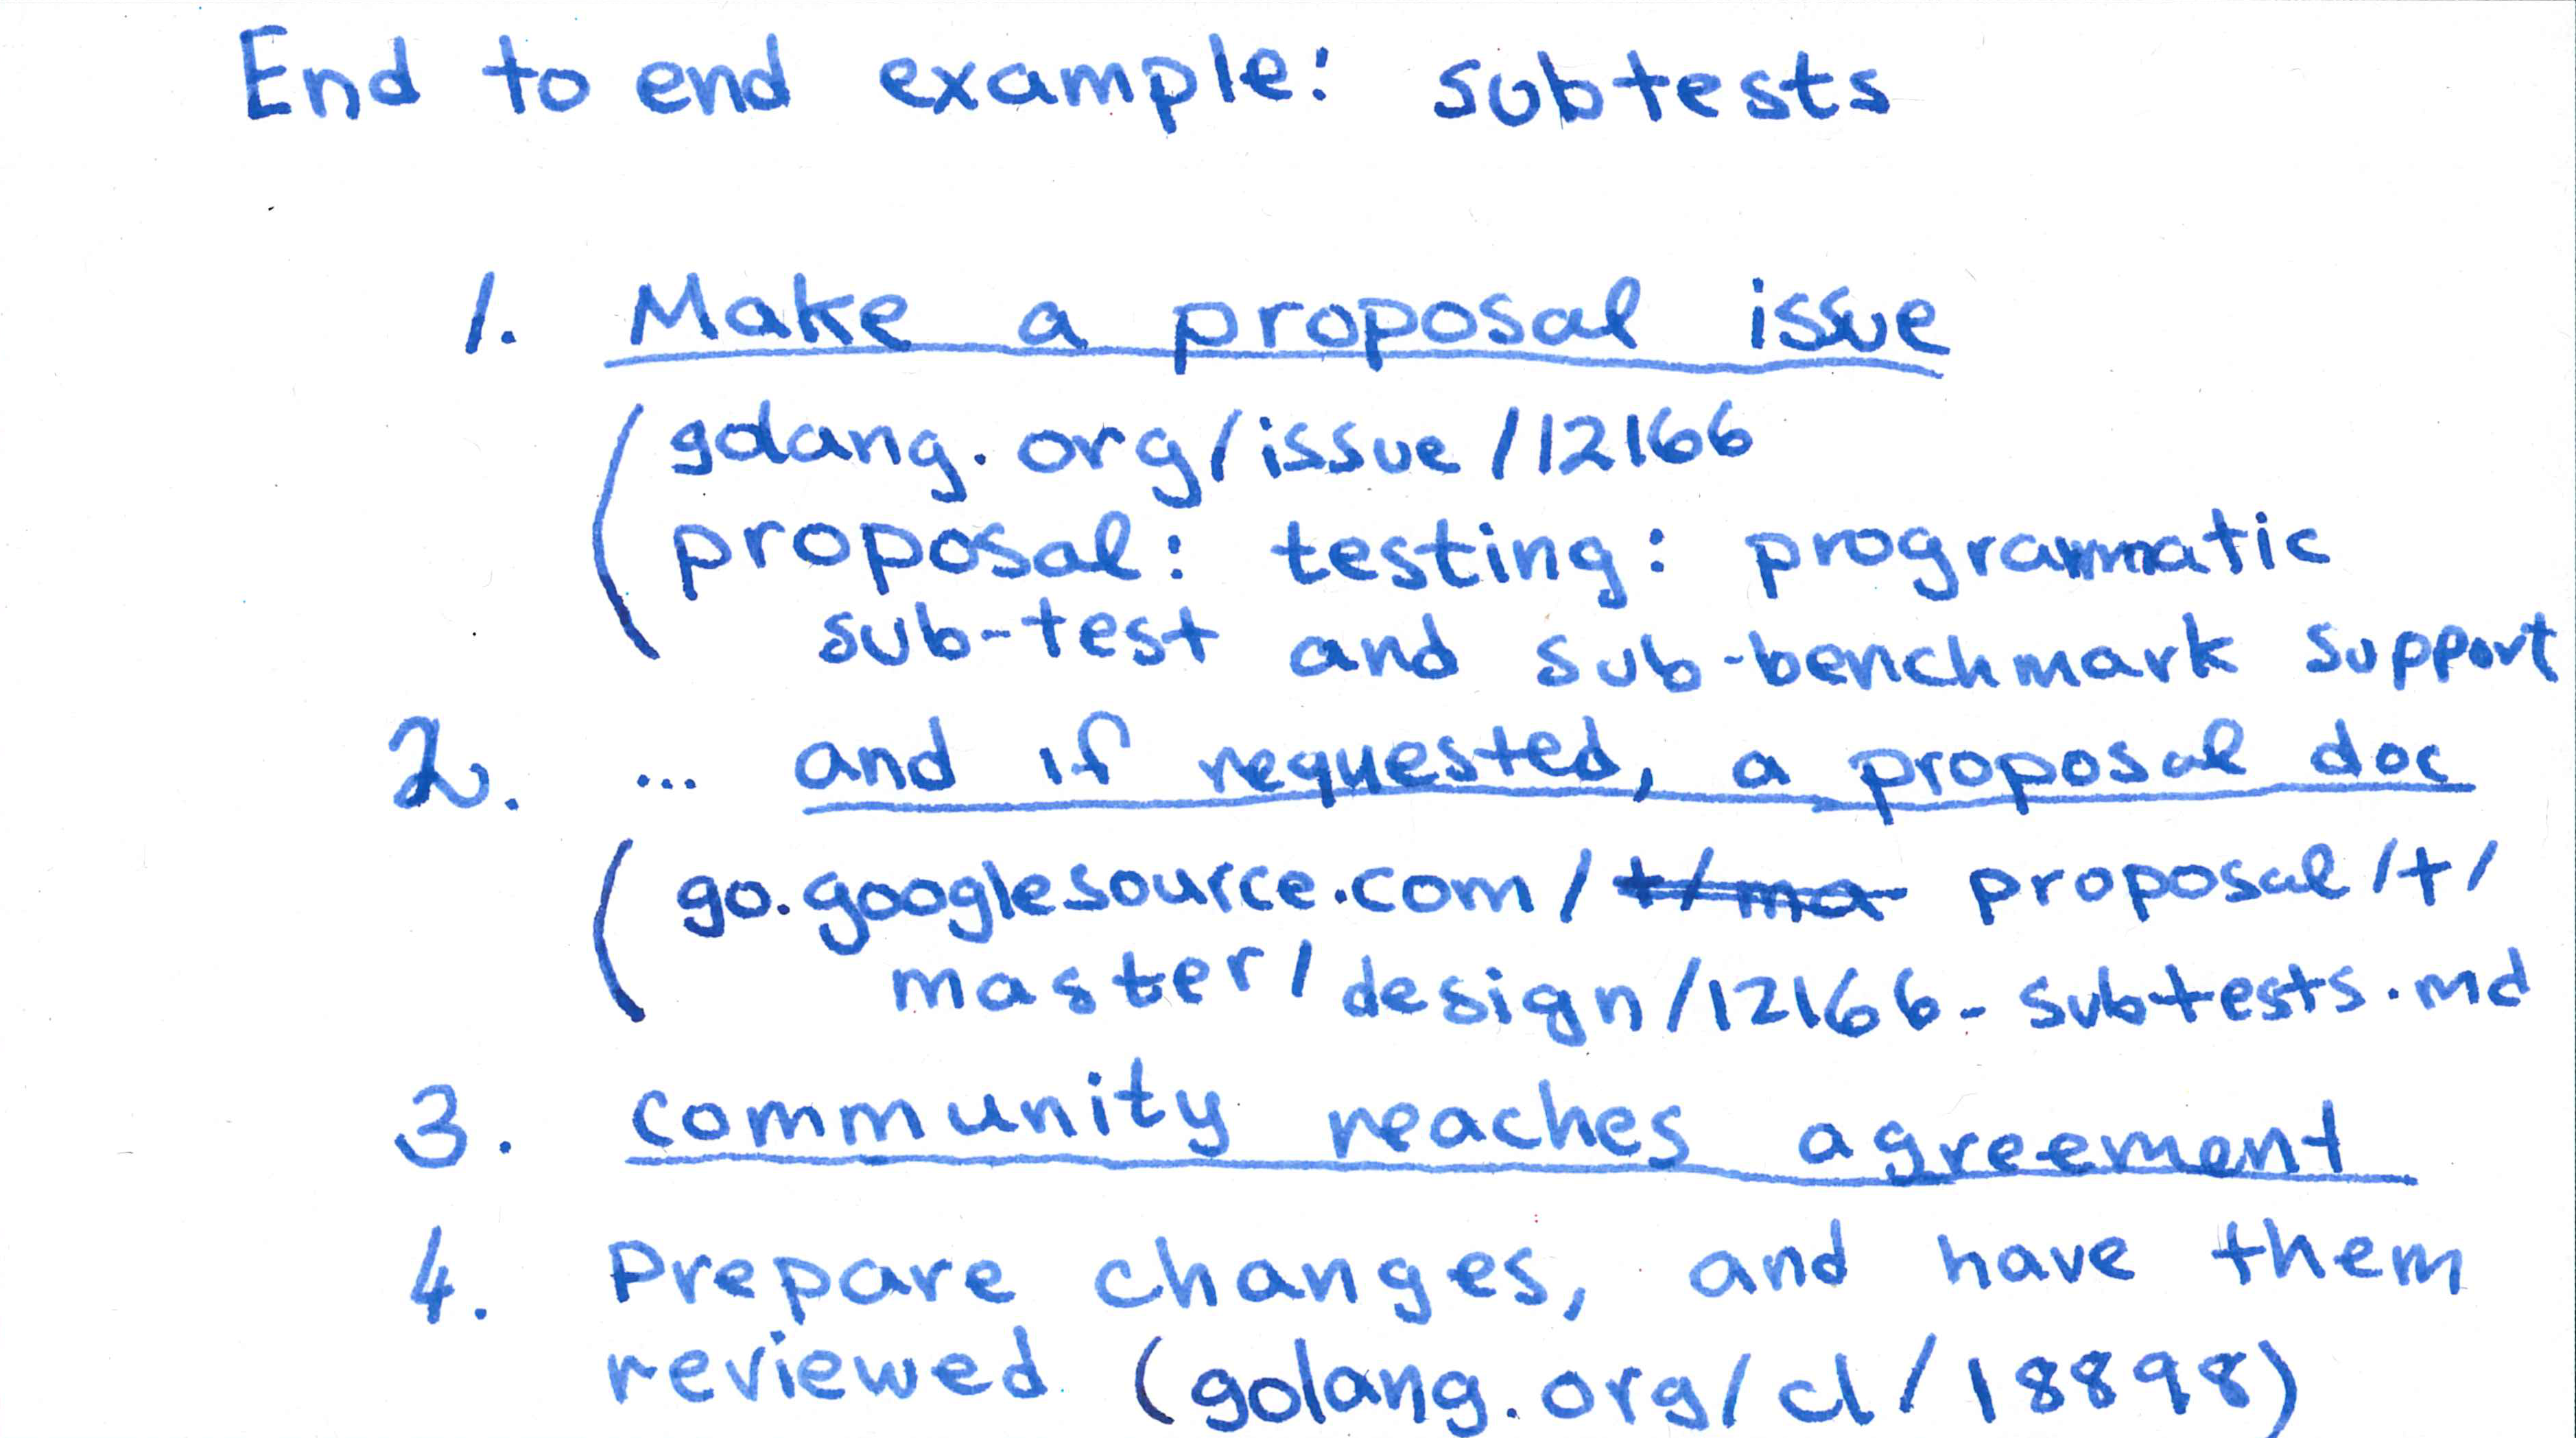 End to end example: subtests
1. Make a proposal issue
(golang.org/issue/12166
proposal: testing: programmatic
sub-test and sub-benchmark support
2. ... and if requested, a proposal doc
(go.googlesource.com/ +/ma proposal/+/
master/design/12166-subtests.md
3. community reaches agreement
4. Prepare changes, and have them
reviewed (golang.org/cl/18898)